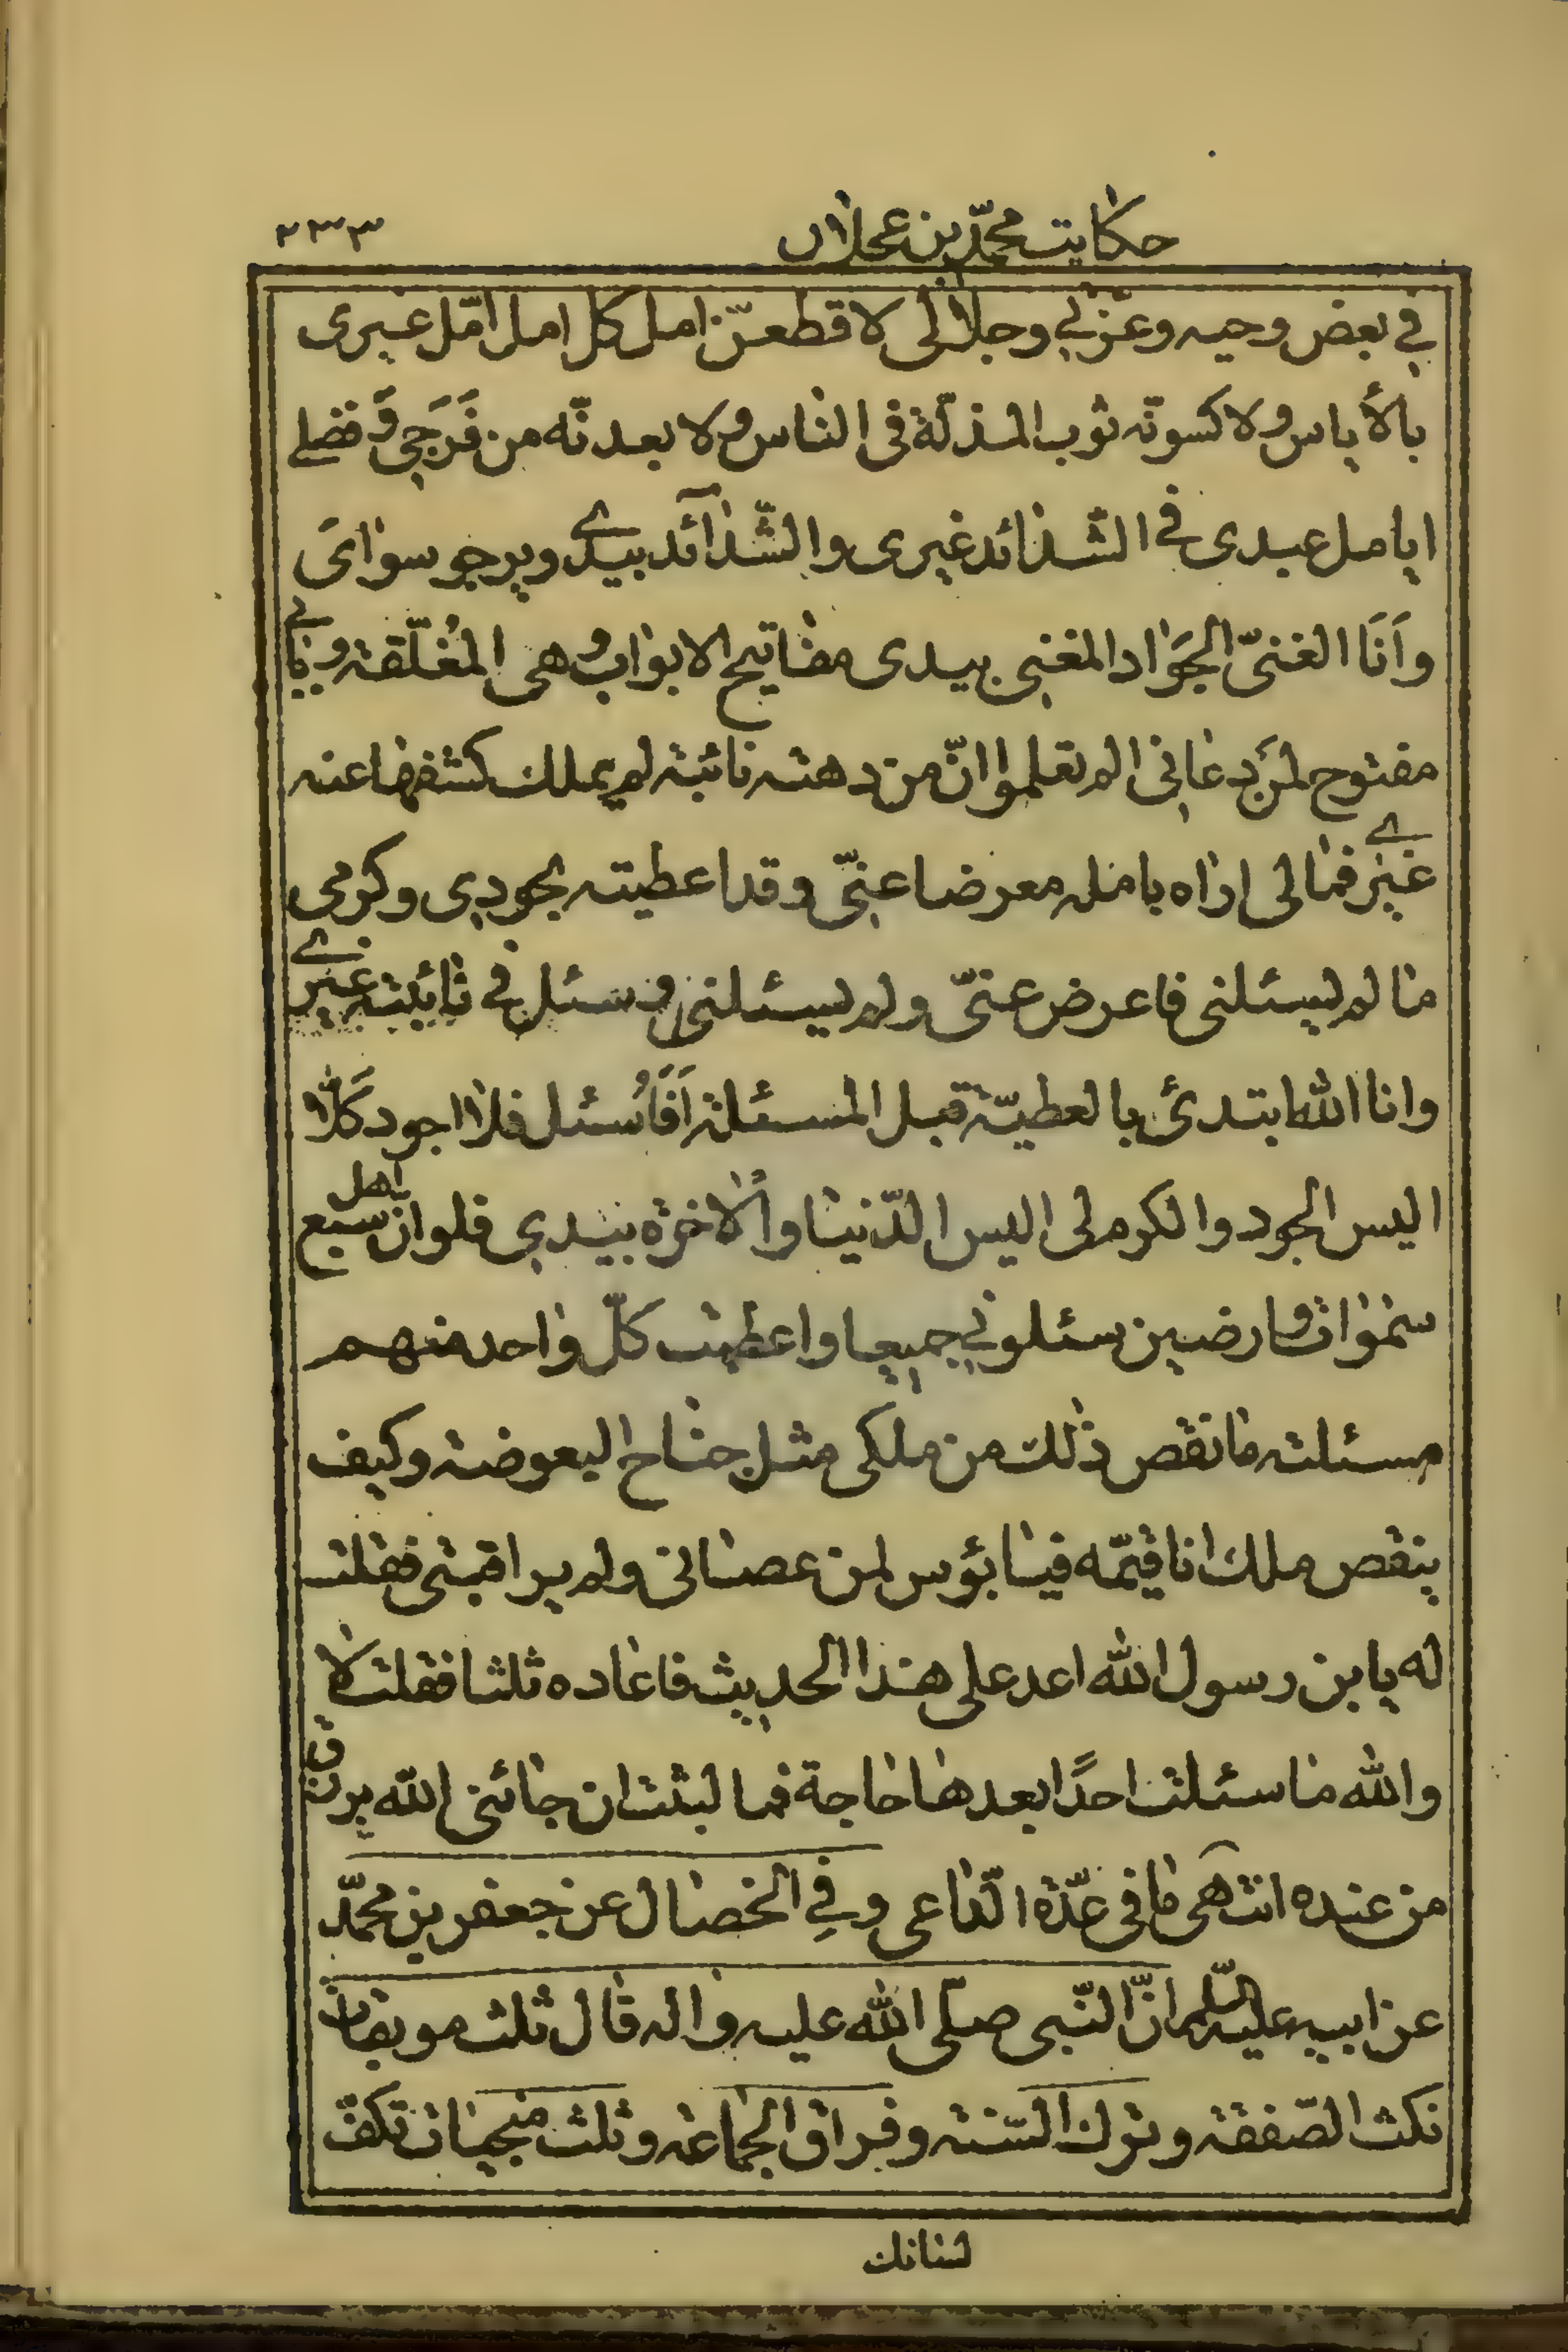 حکایت محمّد بن عجلان ۲۳۳
في بعض وحیه وعزّتي وجلالی لاقطعنّ امل کل امل امّل غیری
بالأیاس ولاکسونّه ثوب المذلّة فی النّاس ولابعدنّه من فَرَجی وَفضلے
ایامل عبدی فے الشّدائد غیری والشّدآئد بیدے ویرجو سوائی
واَنَا الغنیّ الجَوَاد المغنی بیدی مفاتیح الابواب وهی المُغلّقة وبابے
مفتوح لمن دعانی الم تعلموا انّ من دهته نائبة لم یملک کشفها عنه
غیرے فمالی اراه یامله معرضا عنّی وقد اعطیته بجودی وکرمی
ما لم یسئلنی فاعرض عنّی ولم یسئلنی وسئل فی نائبته غیرے
وانا الله ابتدئ بالعطیّة قبل المسئلة اَفَاُسئل فلا اجود کَلّا
الیس الجود والکرم لی الیس الدّنیا والاخرة بیدی فلو انّ اهل سبع
سموات وارضین سئلونی جمیعا واعطیت کلّ واحد منهم
مسئلته ما نقص ذلک من ملکی مثل جناح البعوضة وکیف
ینقص ملک انا قیّمه فیا بؤس لمن عصانی ولم یراقبنی فقلت
له یابن رسول الله اعد علی هذا الحدیث فاعاده ثلثا فقلت لا
والله ما سئلت احدًا بعدها حاجة فما لبثت ان جائنی الله برزق
من عنده انتهی ما فی عدّة الدّاعی وفِی الخصال عن جعفر بن محمّد
عن ابیه علیه السّلم انّ النّبی صلّی الله علیه واله قال ثلث موبقات
نکث الصّفقة وترک السّنة وفراق الجماعة وثلث منجیات تکفّ
لسانک